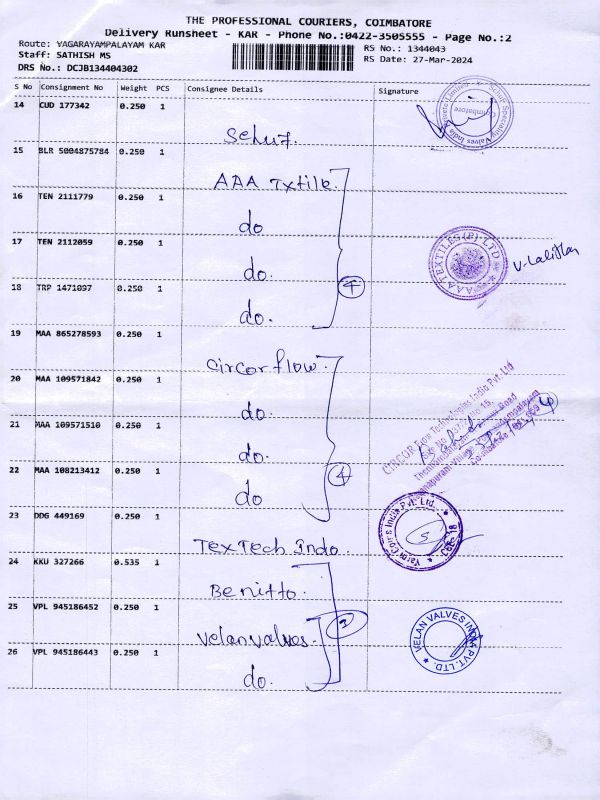 THE PROFESSIONAL COURIERS, COIMBATORE
Delivery Runsheet - KAR - Phone No.:0422-3505555 - Page No.:2
Route: YAGARAYAMPALAYAM KAR
RS No.: 1344043
Staff: SATHISH MS
RS Date: 27-Mar-2024
DRS No.: DCJB134404302
S No Consignment No Weight PCS Consignee Details Signature
14 CUD 177342 0.250 1
Schuf.
15 BLR 5004875784 0.250 1
AAA Txtile.
16 TEN 2111779 0.250 1
do
17 TEN 2112059 0.250 1
do.
AAA TEXTILES (P) LTD
V. Lalitha
18 TRP 1471097 0.250 1
do.
4
19 MAA 865278593 0.250 1
Circor flow.
20 MAA 109571842 0.250 1
do.
CIRCOR Flow Technologies India Pvt. Ltd
21 MAA 109571510 0.250 1
do.
22 MAA 108213412 0.250 1
do
4
23 DDG 449169 0.250 1
Yarm Cores India Pvt. Ltd.
CBE-18
TexTech Indo.
24 KKU 327266 0.535 1
Benitto.
25 VPL 945186452 0.250 1
Velan valves.
VELAN VALVES INDIA PVT. LTD.
26 VPL 945186443 0.250 1
do.